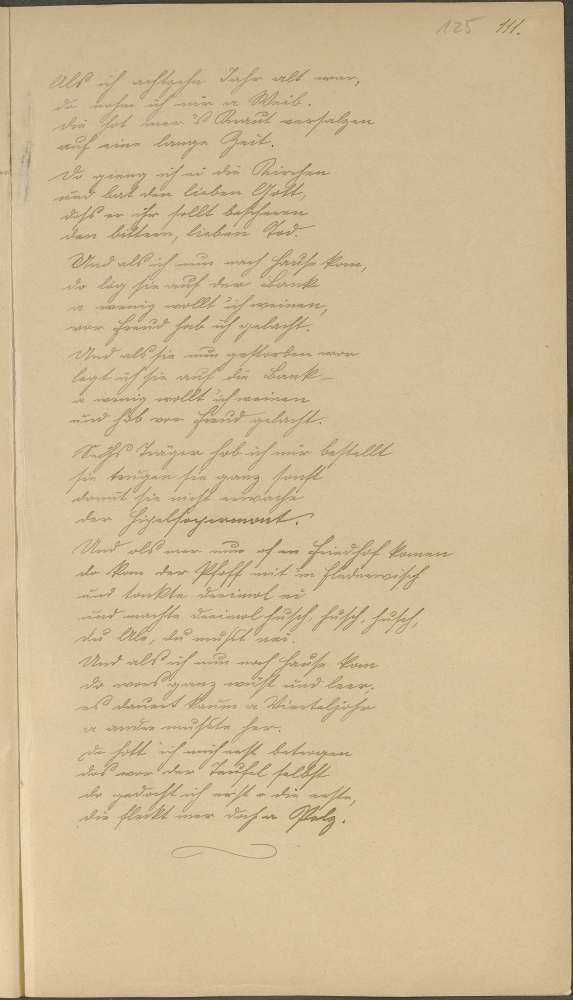 125 111.
Als ich achtzehn Jahr alt war,
da nahm ich mir a Weib.
die hot mer's Kraut versalzen
auf eine lange Zeit.
Do gieng ich ei die Kirchen
und bat den lieben Gott,
dass er ihr sollt bescheren
den bittern, lieben Tod.
Und als ich nun nach Hause kom,
do lag sie auf der Bank
a wenig wollt' ich weinen,
vor Freud hab ich gelacht.
Und als sie nun gestorben war
legt ich sie auf die Bank –
a wenig wollt' ich weinen
und hob vor Freud gelacht.
Sechs Träger hob ich mir bestellt
sie trugen sie ganz sanft
damit sie nicht erwache
der
Und als mer nun of en Friedhof komen
do kom der Pfaff mit'm Flederwisch
und tonkte dreimol ei
und machte dreimol husch, husch, husch,
du Ale, du musst nei.
Und als ich nun nach Hause kom
do wors ganz wüst und leer;
es dauert kaum a Vierteljohr
a andre musste her.
Do hott ich mich erst betrogen
das wor der Teufel selbst
do gedacht ich erst o die erste,
die fleckt mer doch a Pelz.